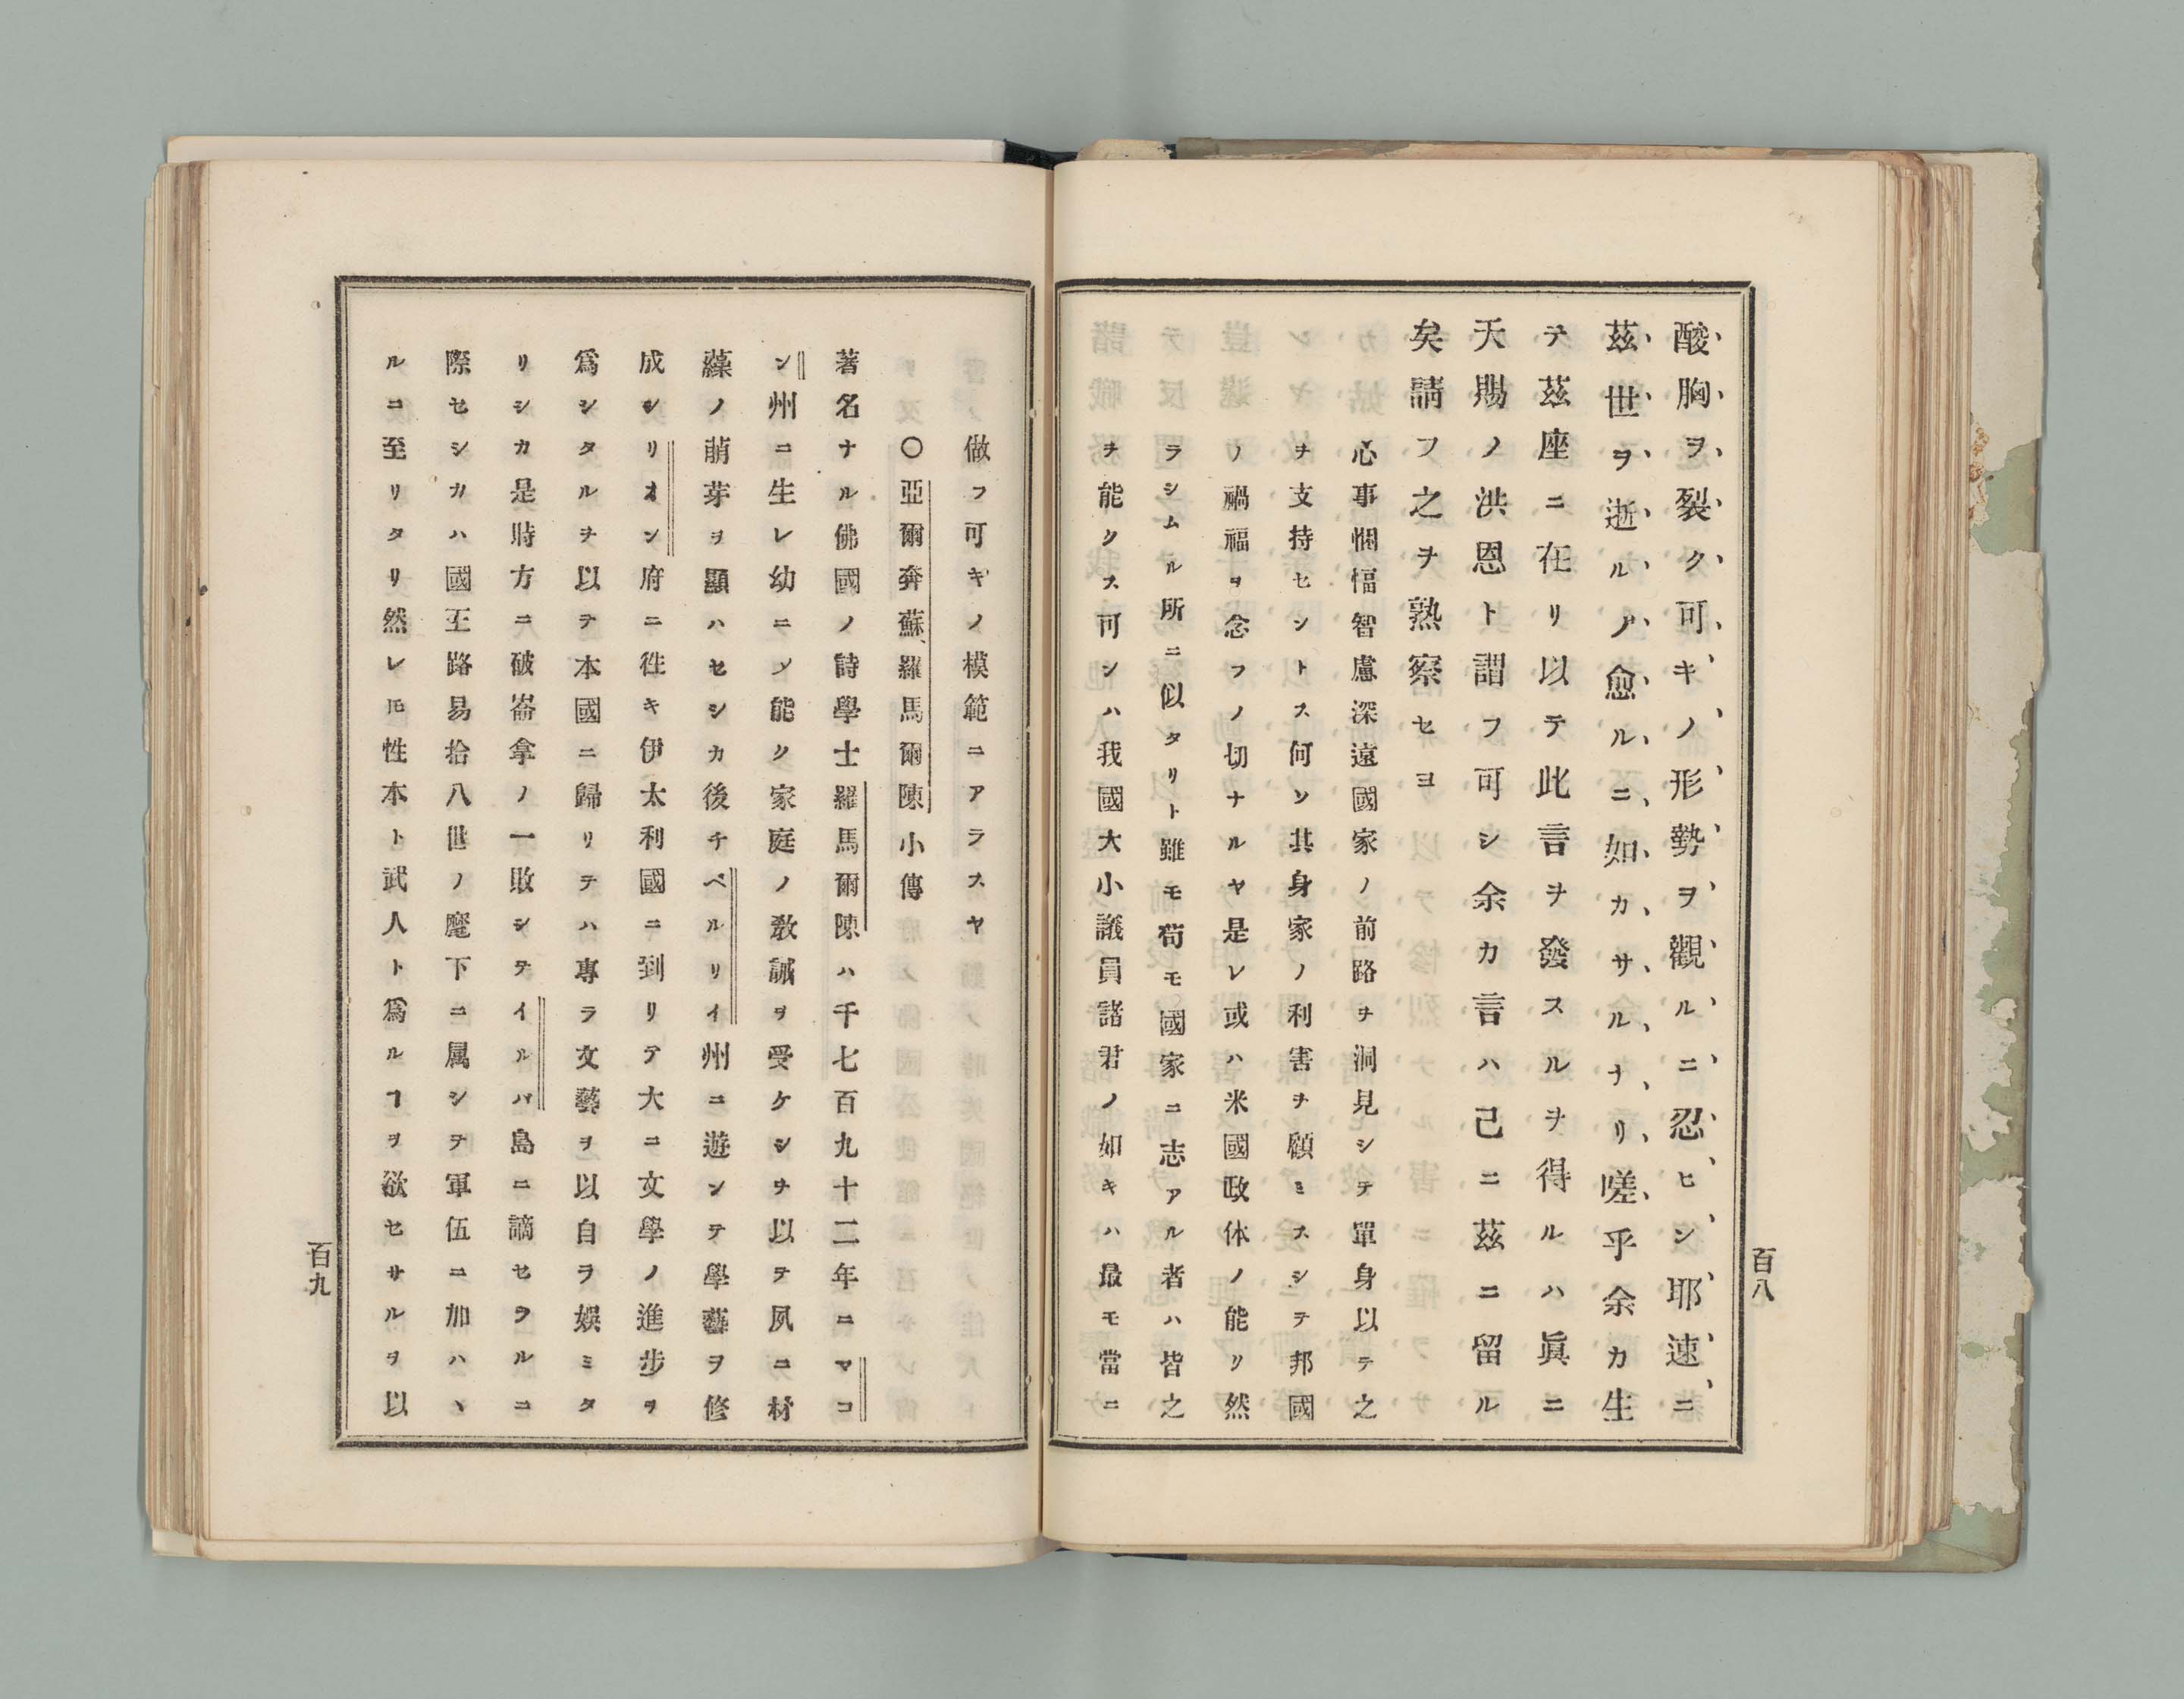 酸胸ヲ裂ク可キノ形勢ヲ觀ルニ忍ヒン耶速ニ
茲世ヲ逝ルノ愈ルニ如カサルナリ嗟乎余カ生
テ茲座ニ在リ以テ此言ヲ發スルヲ得ルハ眞ニ
天賜ノ洪恩ト謂フ可シ余カ言ハ己ニ茲ニ留ル
矣請フ之ヲ熟察セヨ
心事悃愊智慮深遠國家ノ前路ヲ洞見シテ單身以テ之
ヲ支持セシトス何ソ其身家ノ利害ヲ顧ミスシテ邦國
ノ禍福ヲ念フノ切ナルヤ是レ或ハ米國政体ノ能リ然
ラシムル所ニ似タリト雖モ苟モ國家ニ志アル者ハ皆之
ヲ能クス可シハ我國大小議員諸君ノ如キハ最モ當ニ
百八
做フ可キノ模範ニアラスヤ
〇亞爾奔蘇、羅馬爾陳小傳
著名ナル佛國ノ詩學士羅馬爾陳ハ千七百九十二年ニマコ
ン州ニ生レ幼ニシテ能ク家庭ノ敎誡ヲ受ケシヲ以テ夙ニ材
藻ノ萠芽ヲ顯ハセシカ後チベルリイ州ニ遊ンテ學藝ヲ修
成シリオン府ニ徃キ伊太利國ニ到リテ大ニ文學ノ進步ヲ
爲シタルヲ以テ本國ニ歸リテハ專ラ文藝ヲ以自ラ娯ミタ
リシカ是時方ニ破崙拿ノ一敗シテイルバ島ニ謫セラルニ
際セシカハ國王路易拾八世ノ麾下ニ属シテ軍伍ニ加ハヽ
ルコ至リタリ然レ𪜈性本ト武人ト爲ルヿヲ欲セサルヲ以
百九